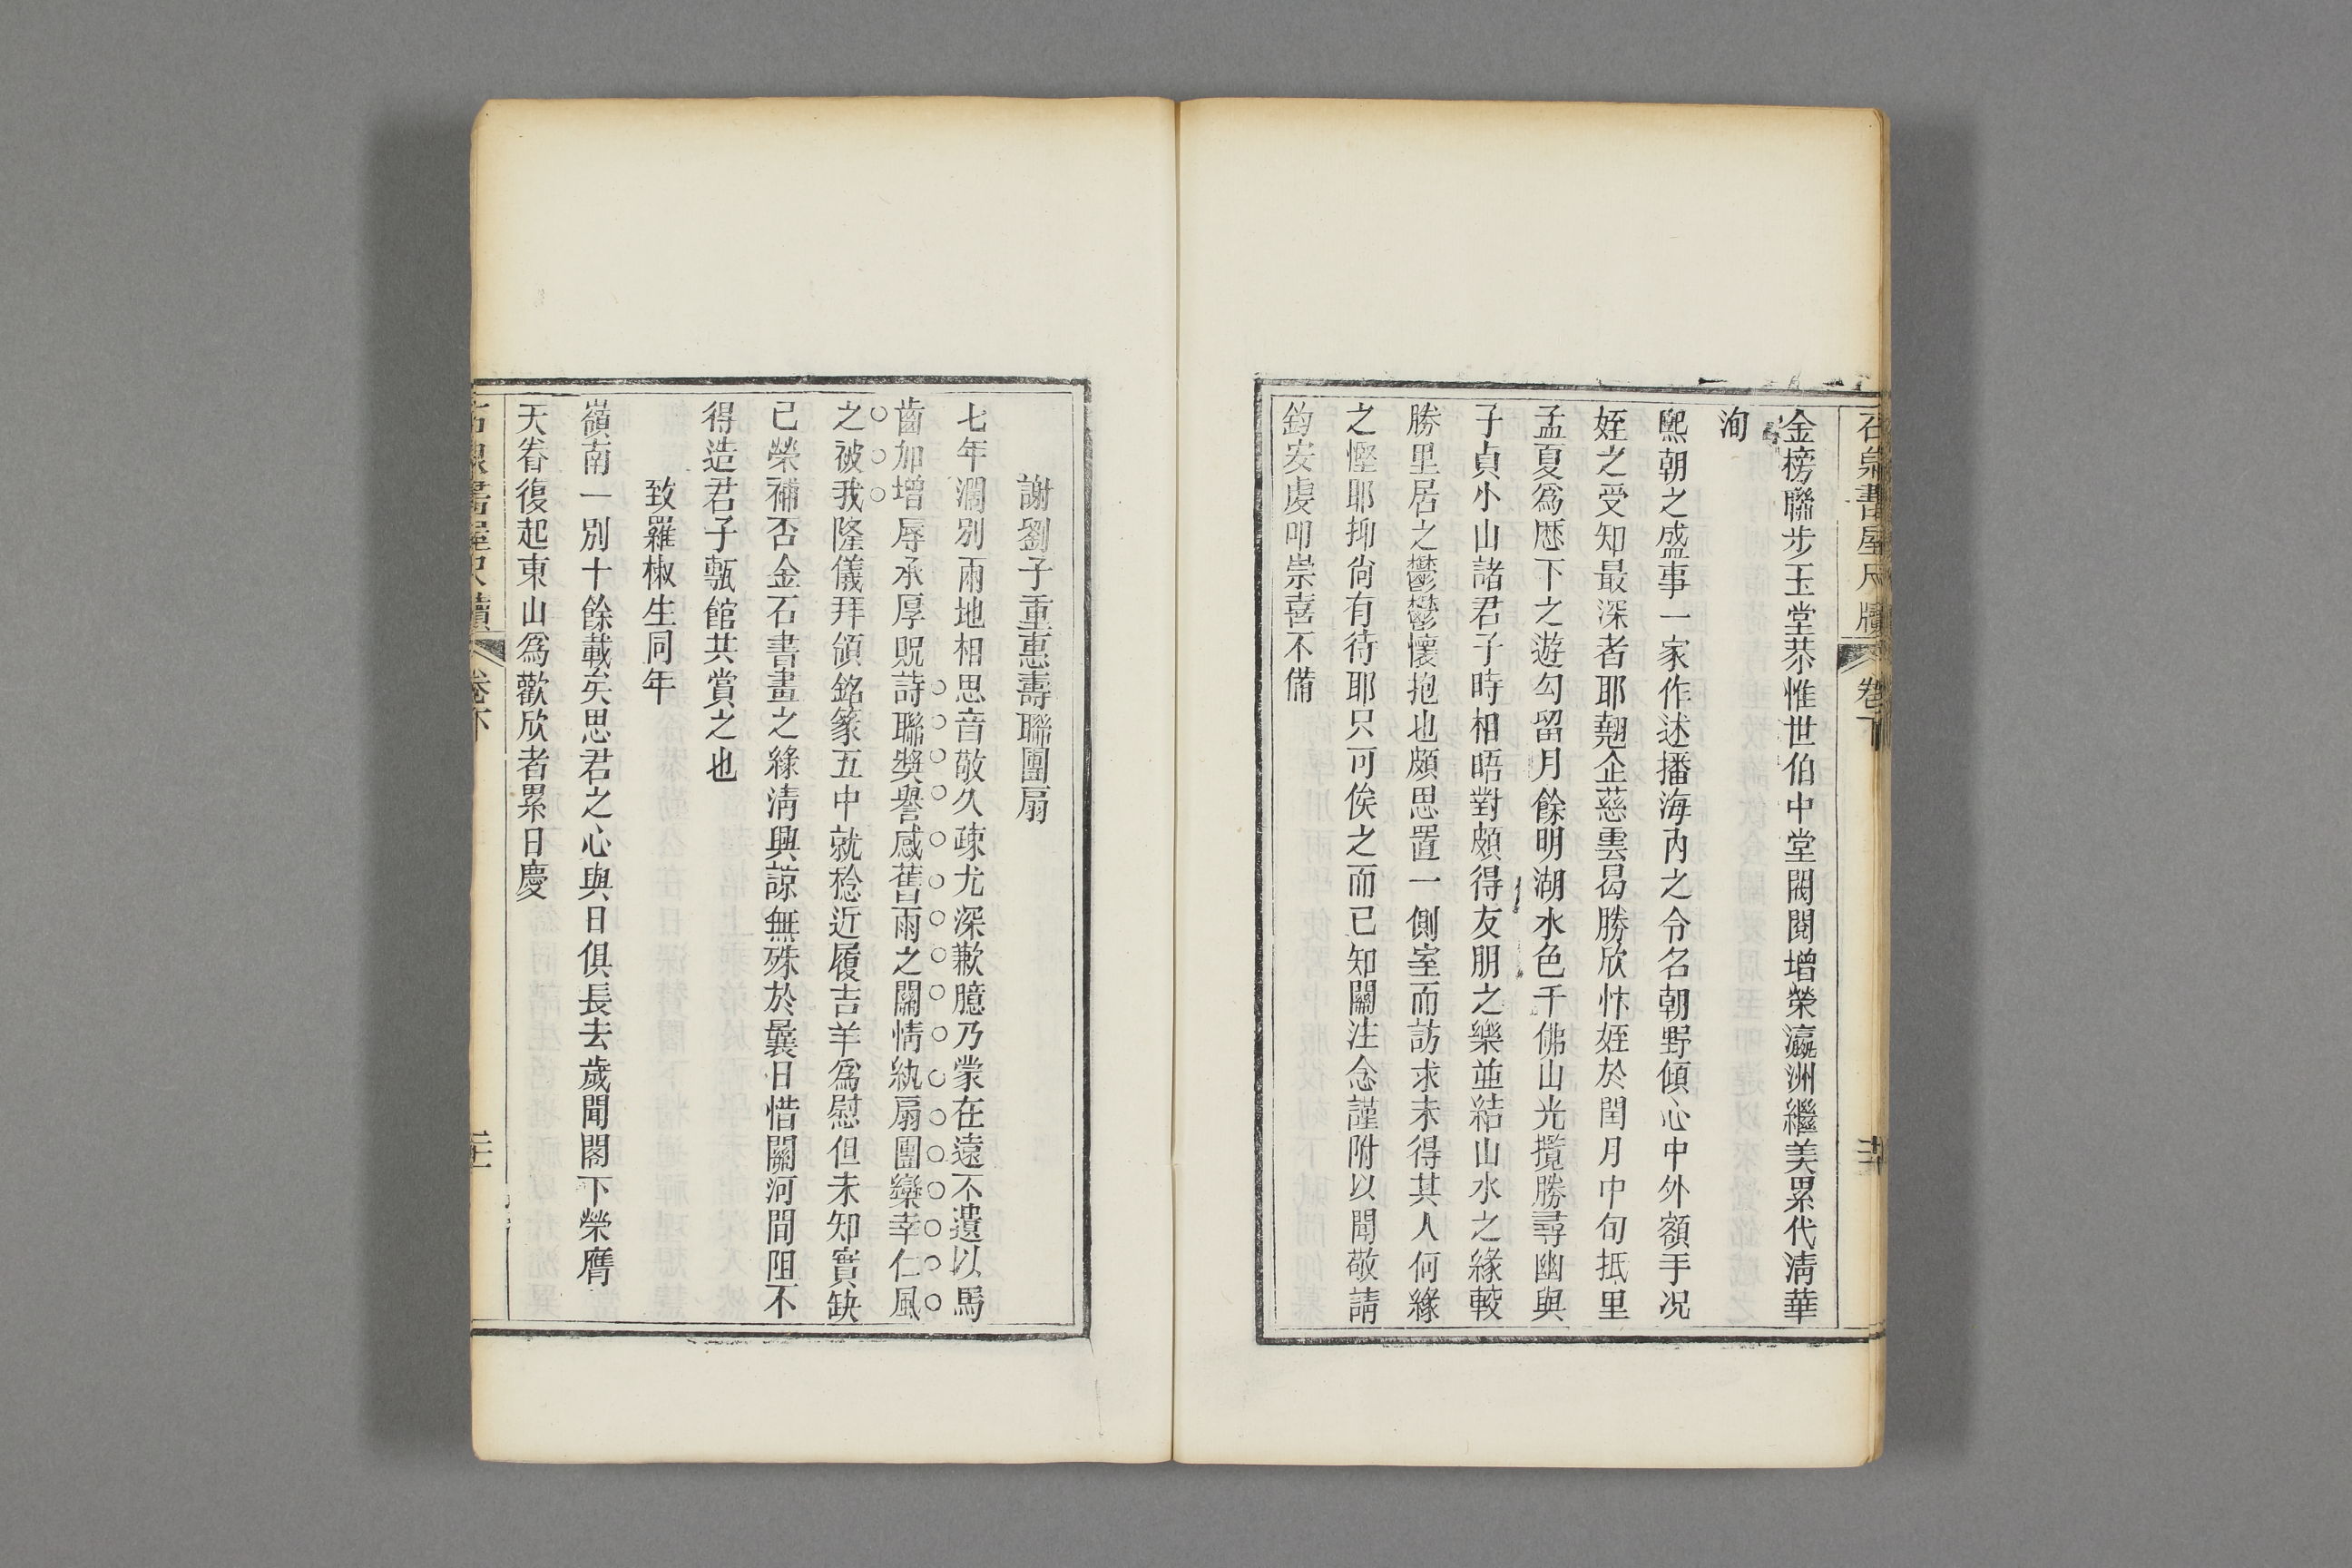 石泉書屋尺牘 卷下
金榜聯步玉堂恭惟世伯中堂閥閱增榮瀛洲繼美累代淸華
洵
熙朝之盛事一家作述播海內之令名朝野傾心中外額手況
姪之受知最深者耶翹企慈雲曷勝欣忭姪於閏月中旬抵里
孟夏爲歷下之遊勾留月餘明湖水色千佛山光攬勝尋幽與
子貞小山諸君子時相晤對頗得友朋之樂並結山水之緣較
勝里居之鬱鬱懷抱也頗思置一側室而訪求未得其人何緣
之慳耶抑尙有待耶只可俟之而已知關注念謹附以聞敬請
鈞安虔叩崇喜不備
謝劉子重惠壽聯團扇
七年濶別兩地相思音敬久疎尤深歉臆乃蒙在遠不遺以馬
齒加增辱承厚貺詩聯獎譽感舊雨之關情紈扇團欒幸仁風
之被我隆儀拜領銘篆五中就稔近履吉羊爲慰但未知實缺
已榮補否金石書畫之緣淸興諒無殊於曩日惜關河間阻不
得造君子甎館共賞之也
致羅椒生同年
嶺南一別十餘載矣思君之心與日俱長去歲聞閣下榮膺
天眷復起東山爲歡欣者累日慶
石泉書屋尺牘 卷下